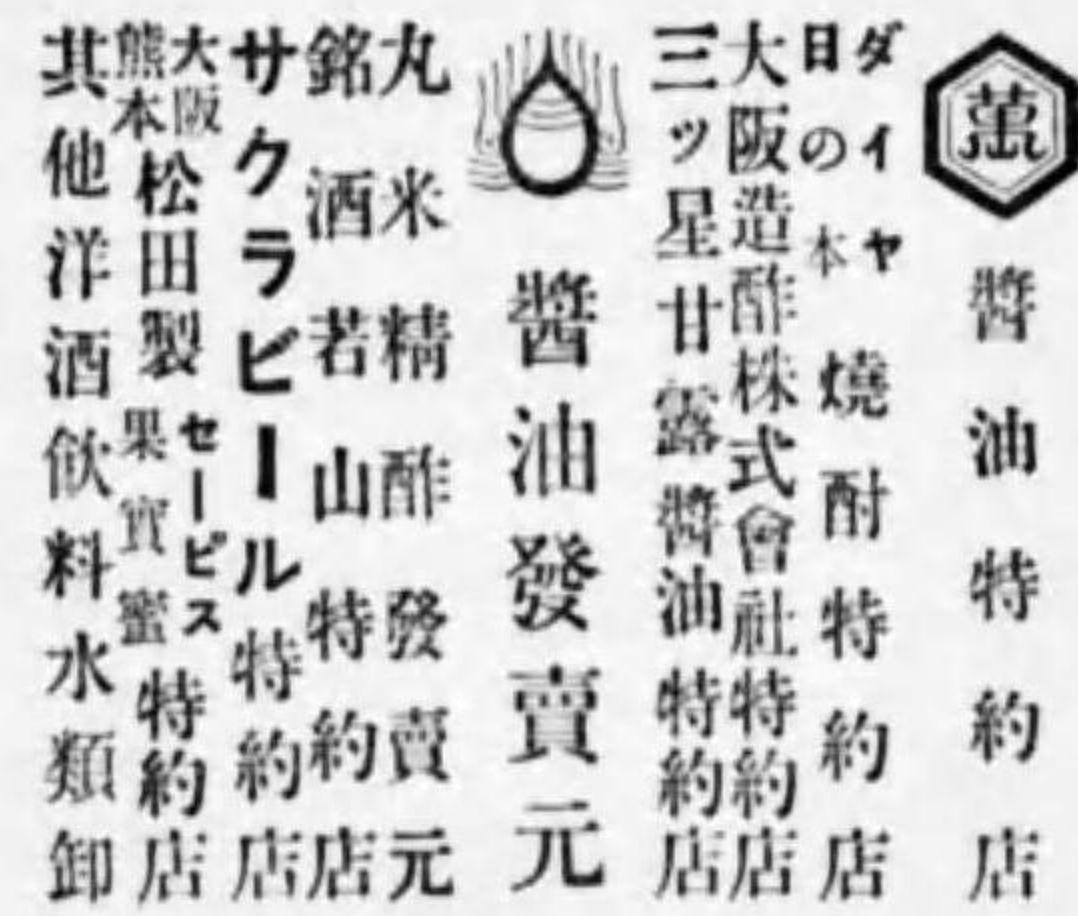 萬
醬油特約店
ダイヤ
日の本
燒酎特約店
大阪造酢株式會社特約店
三ッ星甘露醬油特約店
醬油發賣元
丸米精酢發賣元
銘酒若山特約店
サクラビール特約店
大阪
熊本
松田製
セーピス
果實蜜
特約店
其他洋酒飮料水類卸